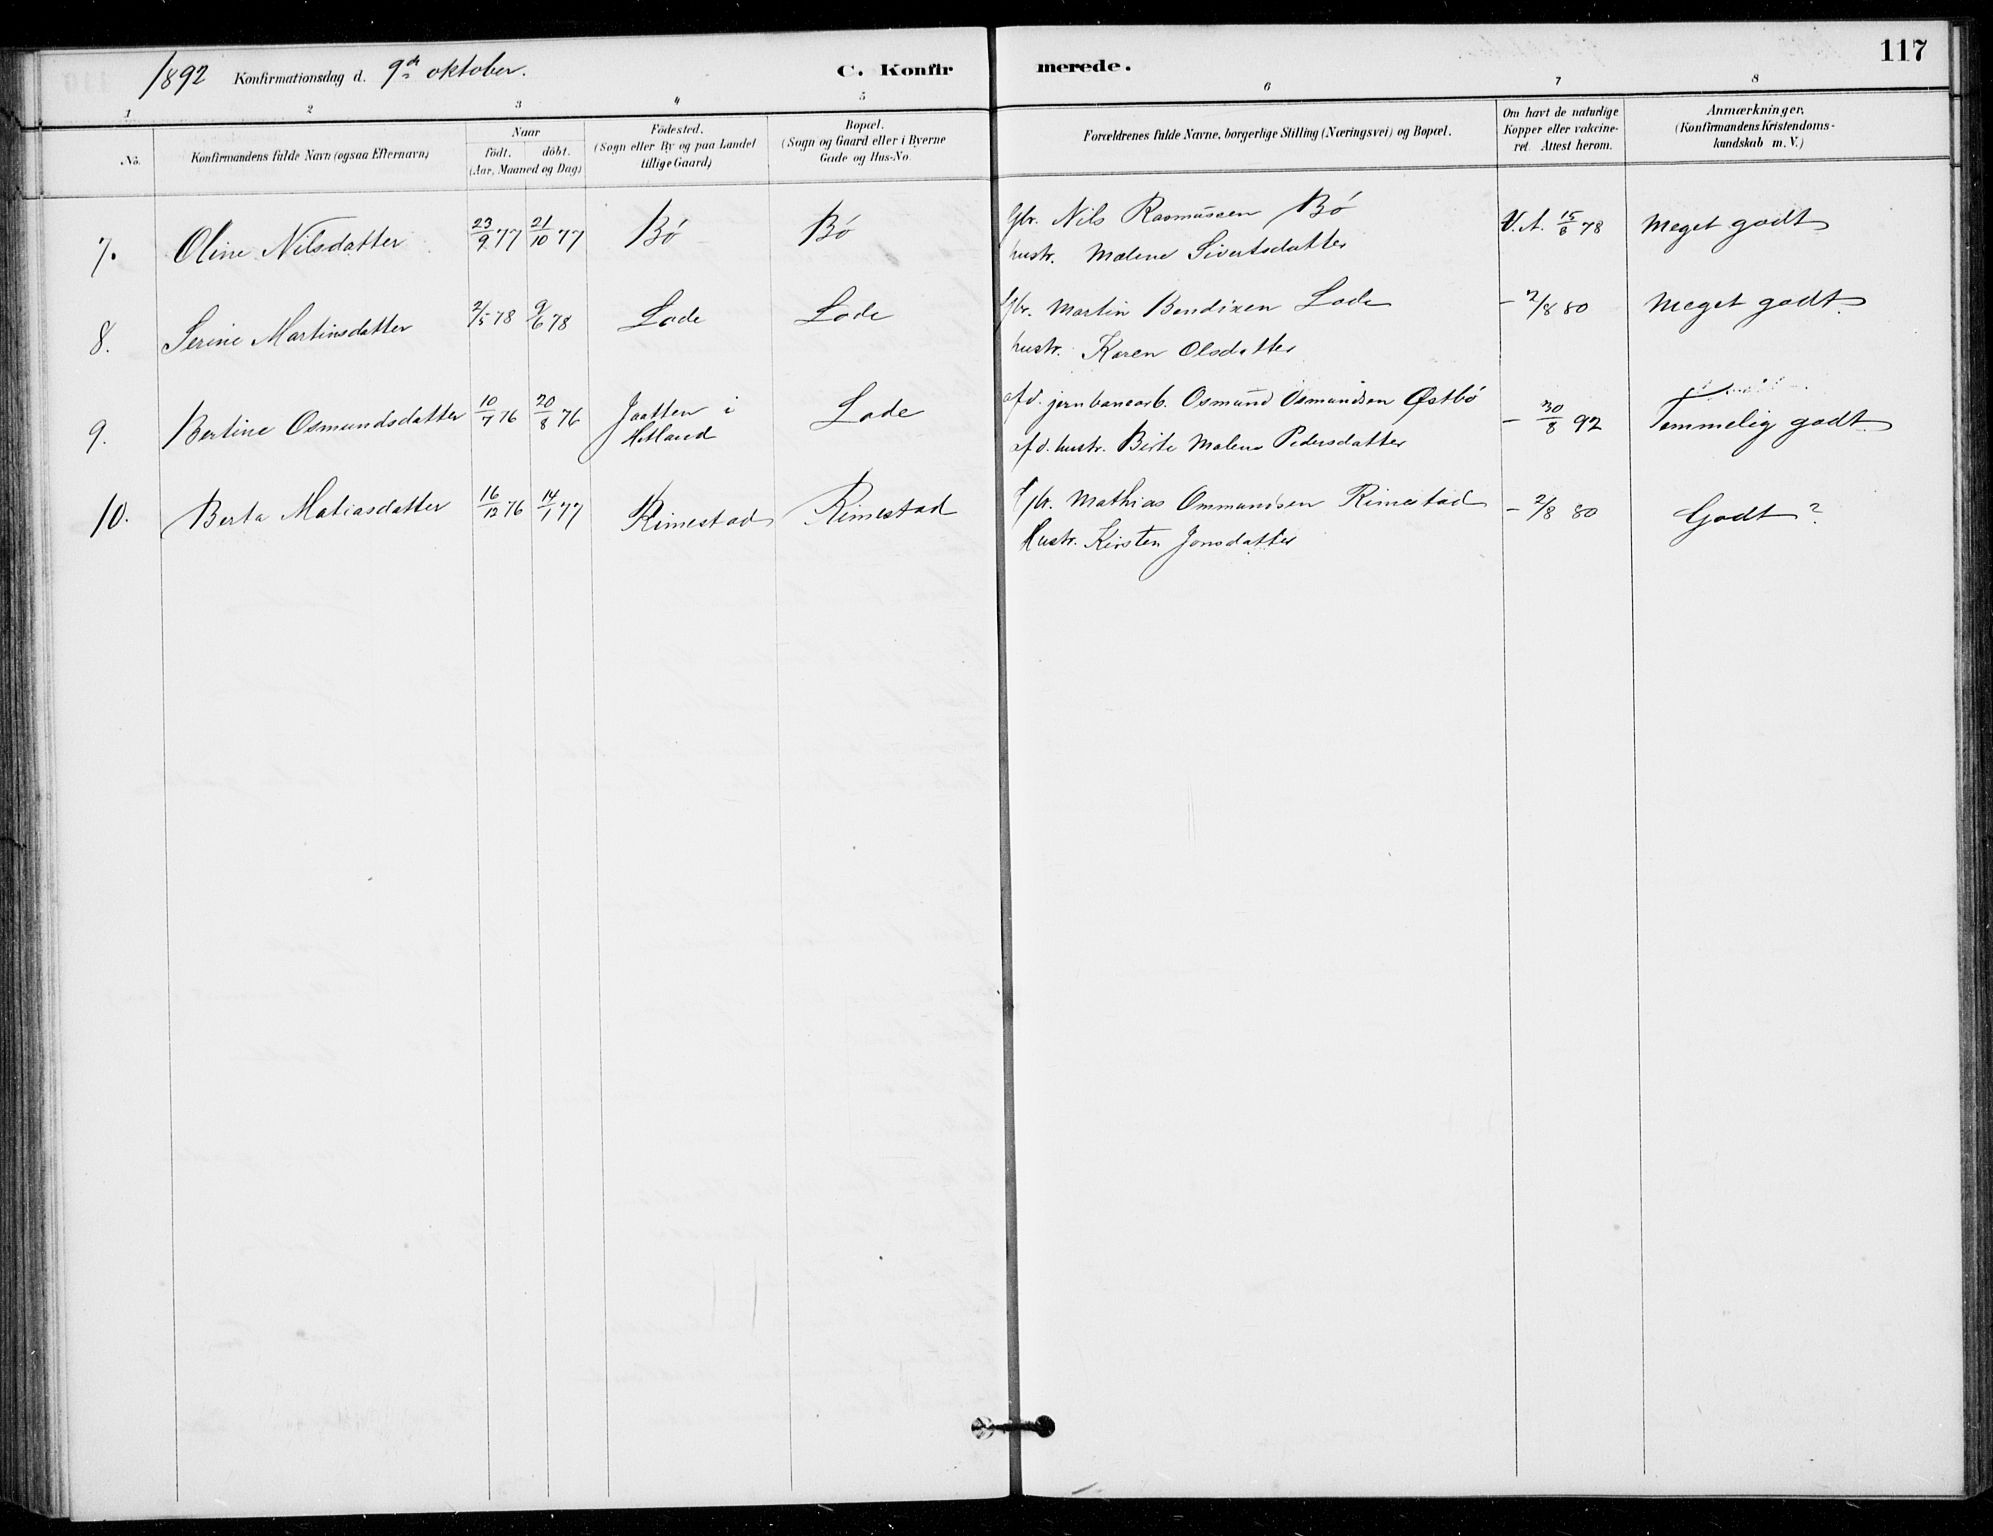 1892 Konfirmationsdag d. 9de oktober.
C. Konfirmerede.
117
1 2 3 4 5 6 7 8
No.
Konfirmandens fulde Navn (ogsaa Efternavn)
Naar
født. døbt.
(Aar, Maaned og Dag)
Fødested.
(Sogn eller By og paa Landet
tillige Gaard)
Bopæl.
(Sogn og Gaard eller i Byerne
Gade og Hus-No.
Forældrenes fulde Navne, borgerlige Stilling (Næringsvei) og Bopæl.
Om havt de naturlige
Kopper eller vakcine-
ret. Attest herom.
Anmærkninger.
(Konfirmandens Kristendoms-
kundskab m. V.)
7. Oline Nilsdatter 23/9 77 21/10 77 Bø Bø Gbr. Nils Rasmussen Bø V.A. 15/6 78 Meget godt
hustr. Malene Sivertsdatter
8. Serine Martinsdatter 2/5 78 9/6 78 Lode Lode Gbr. Martin Bendixen Lode – 2/8 80 Meget godt.
hustr. Karen Olsdatter
9. Bertine Osmundsdatter 10/7 76 20/8 76 Jaatten i Lode afd. jernbanearb. Osmund Osmundsen Østbø – 30/8 92 Temmelig godt.
Hetland afd. hustr. Birte Malene Pedersdatter
10. Berta Matiasdatter 16/12 76 14/1 77 Rimestad Rimestad Gbr. Mathias Ommundsen Rimestad – 2/8 80 Godt?
Hustr. Kirsten Jonsdatter